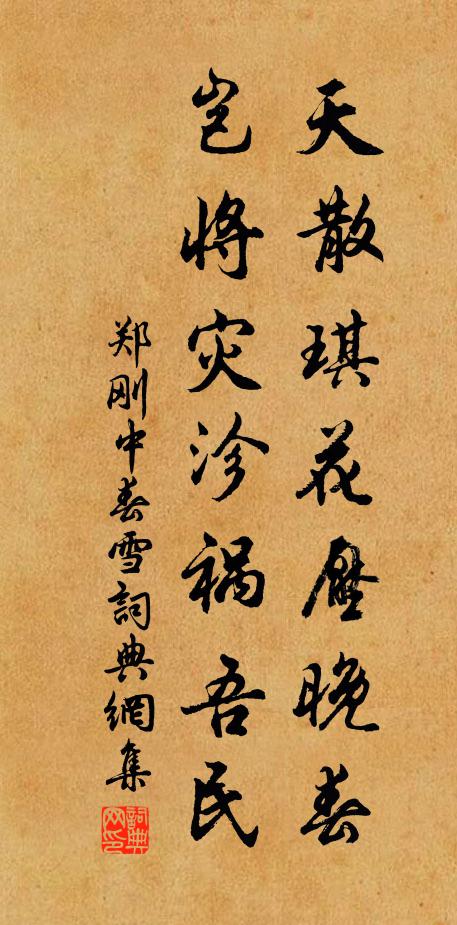 天散琪花壓晚春
岂将灾沴祸吾民
郑刚中春雪詞典網集
詞典网印